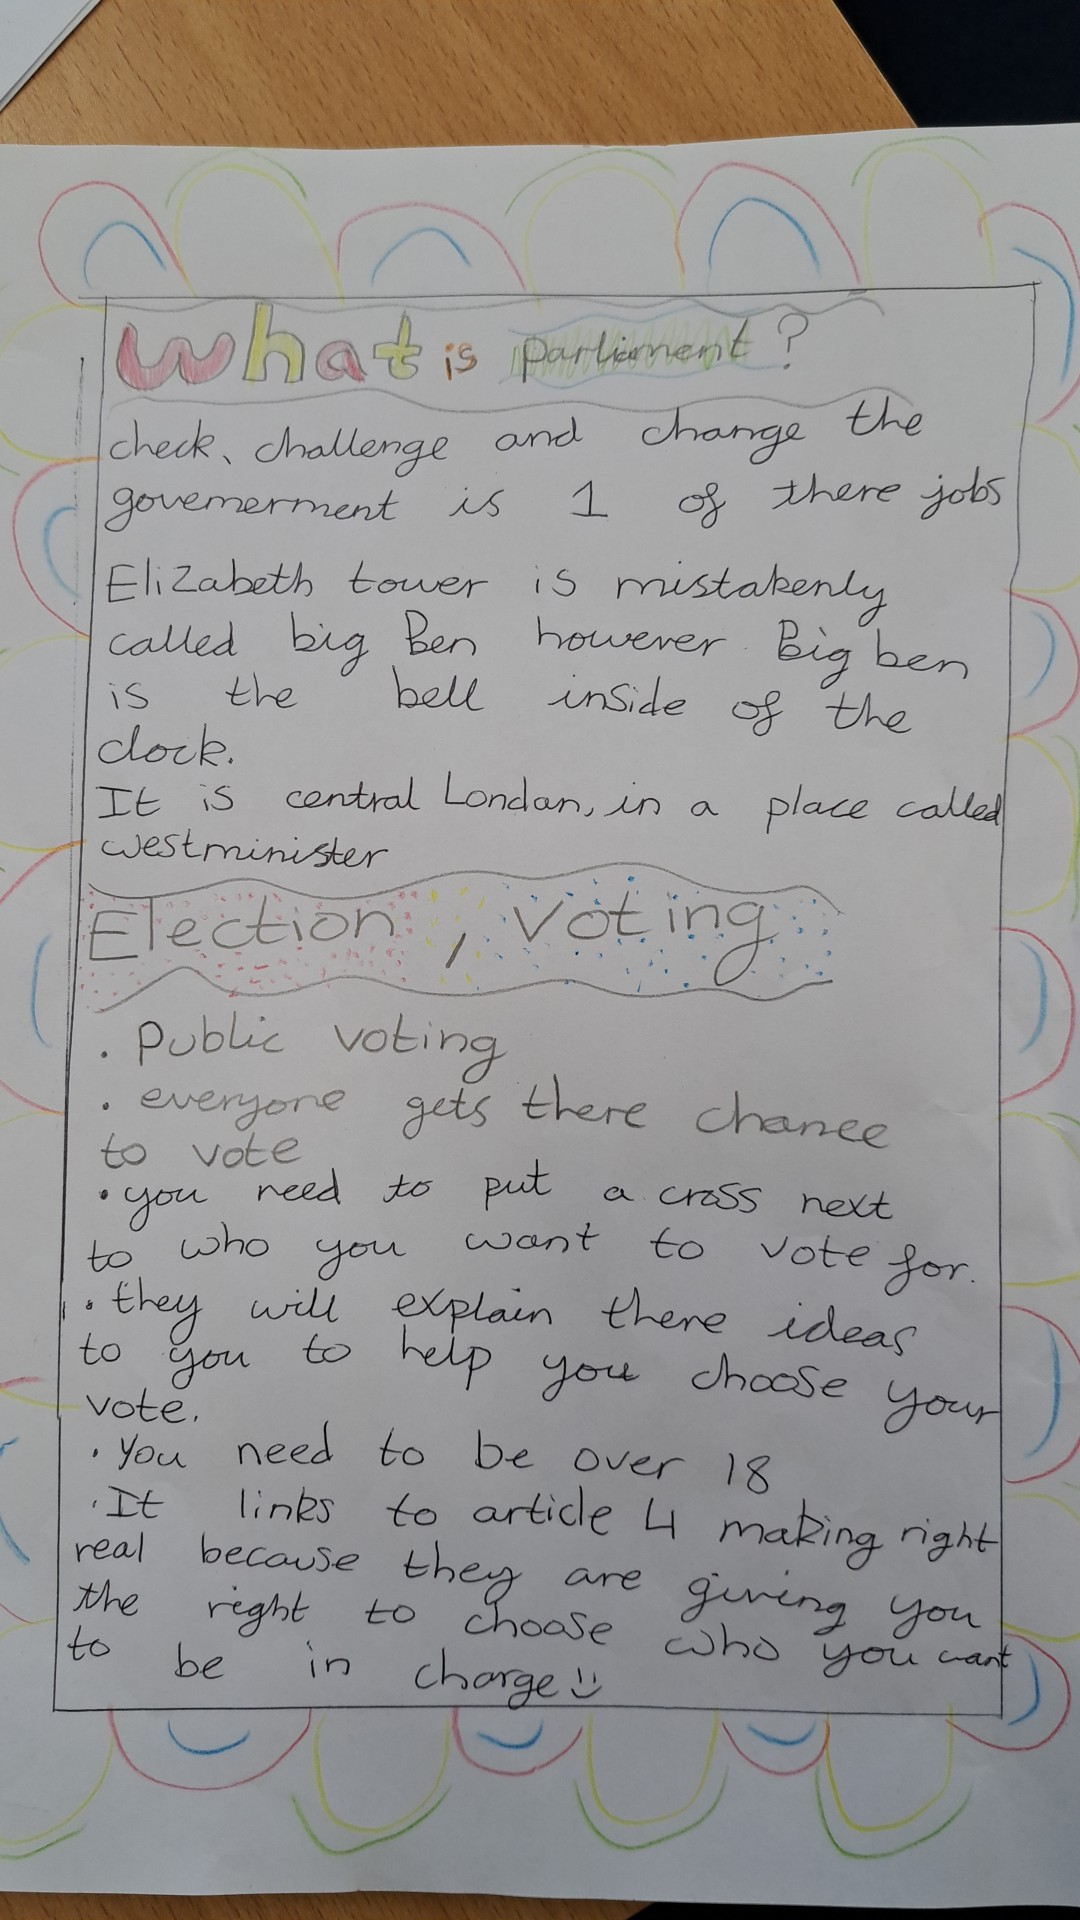 What is parliment?
check, challenge and change the
govemerment is 1 of there jobs
Elizabeth tower is mistakenly
called big Ben however Big ben
is the bell inside of the
clock.
It is central London, in a place called
westminister
Election, Voting
. Public voting
. everyone gets there chance
to vote
. you need to put a cross next
to who you want to vote for.
. they will explain there ideas
to you to help you choose your
vote.
. You need to be over 18
. It links to article 4 making right
real because they are giving you
the right to choose who you want
to be in charge